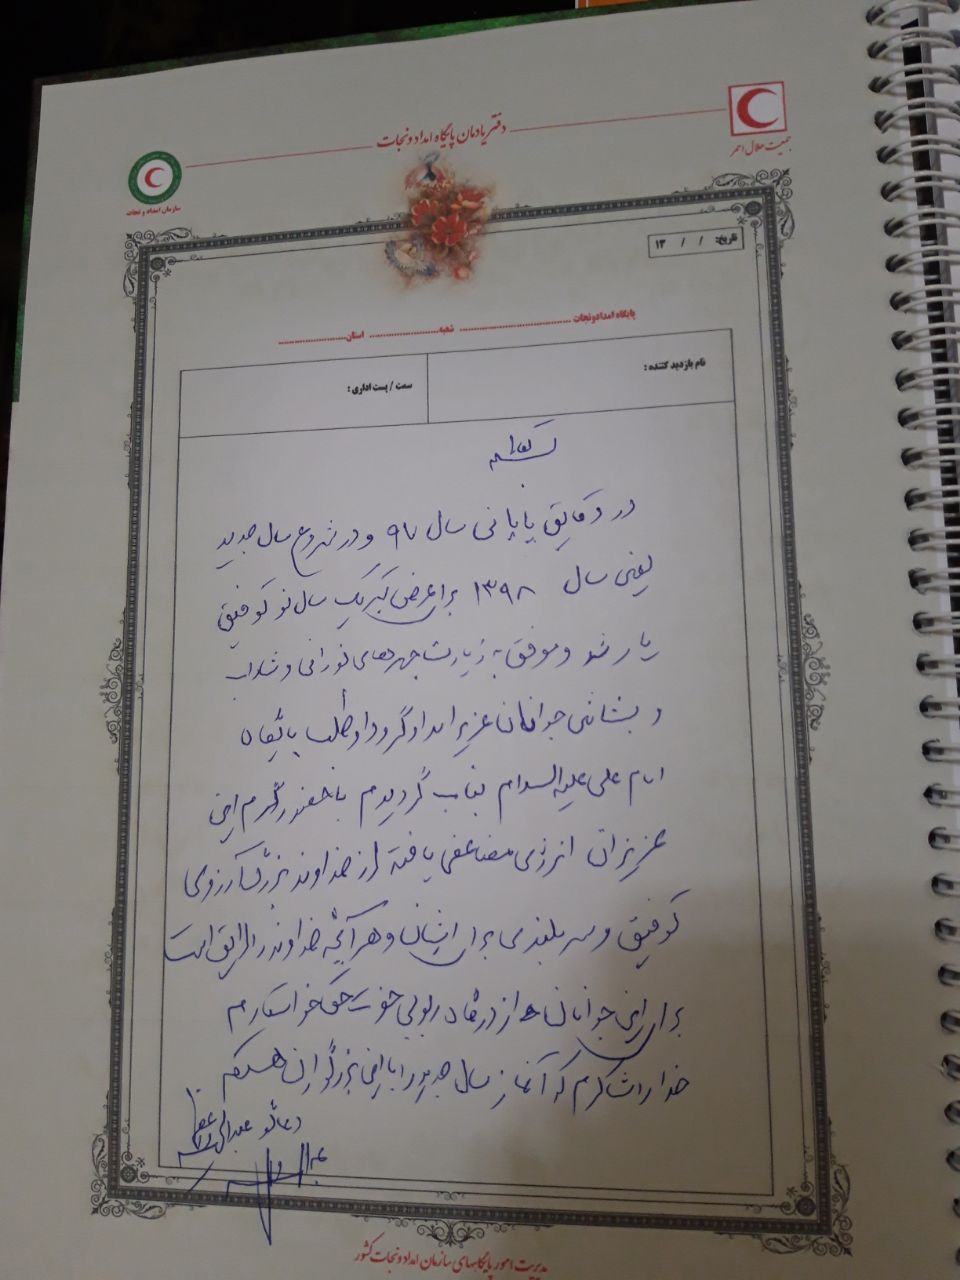 دفتر یادمان پایگاه امداد و نجات
جمعیت هلال احمر
سازمان امداد و نجات
تاریخ: / / ۱۳
پایگاه امدادونجات .................................. شعبه..................... استان.....................
نام بازدید کننده :
سمت / پست اداری :
در دقایق پایانی سال ۹۷ و در شروع سال جدید
یعنی سال ۱۳۹۸ برای عرض تبریک سال نو توفیق
یار شد و موفق به زیارت چهره‌های نورانی و شاداب
و بشاش جوانان عزیز امدادگر و داوطلب پایگاه
امام علی علیه السلام گردیدم با حضور گرم این
عزیزان انرژی مضاعفی یافته از خداوند بزرگ آرزوی
توفیق و سربلندی برای ایشان و هر آنچه خداوند را لایق است
برای این جوانان از درگاه ربوبی حضرت حق خواستارم
خدا را شاکرم که آغاز سال جدید را با این بزرگواران هستم
دعاگو
مدیریت امور پایگاههای سازمان امداد و نجات کشور